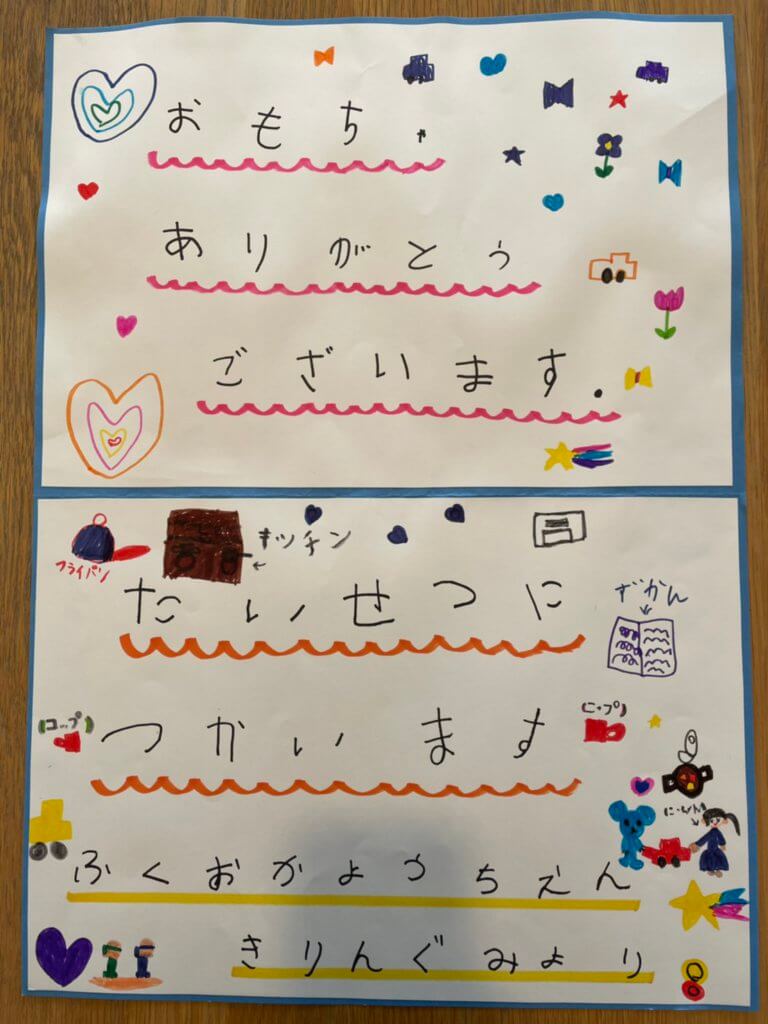 おもちゃ
ありがとう
ございます.
フライパン
キッチン
たいせつに
ずかん
(コップ)
つかいます
(コップ)
ふくおかようちえん
きりんぐみより